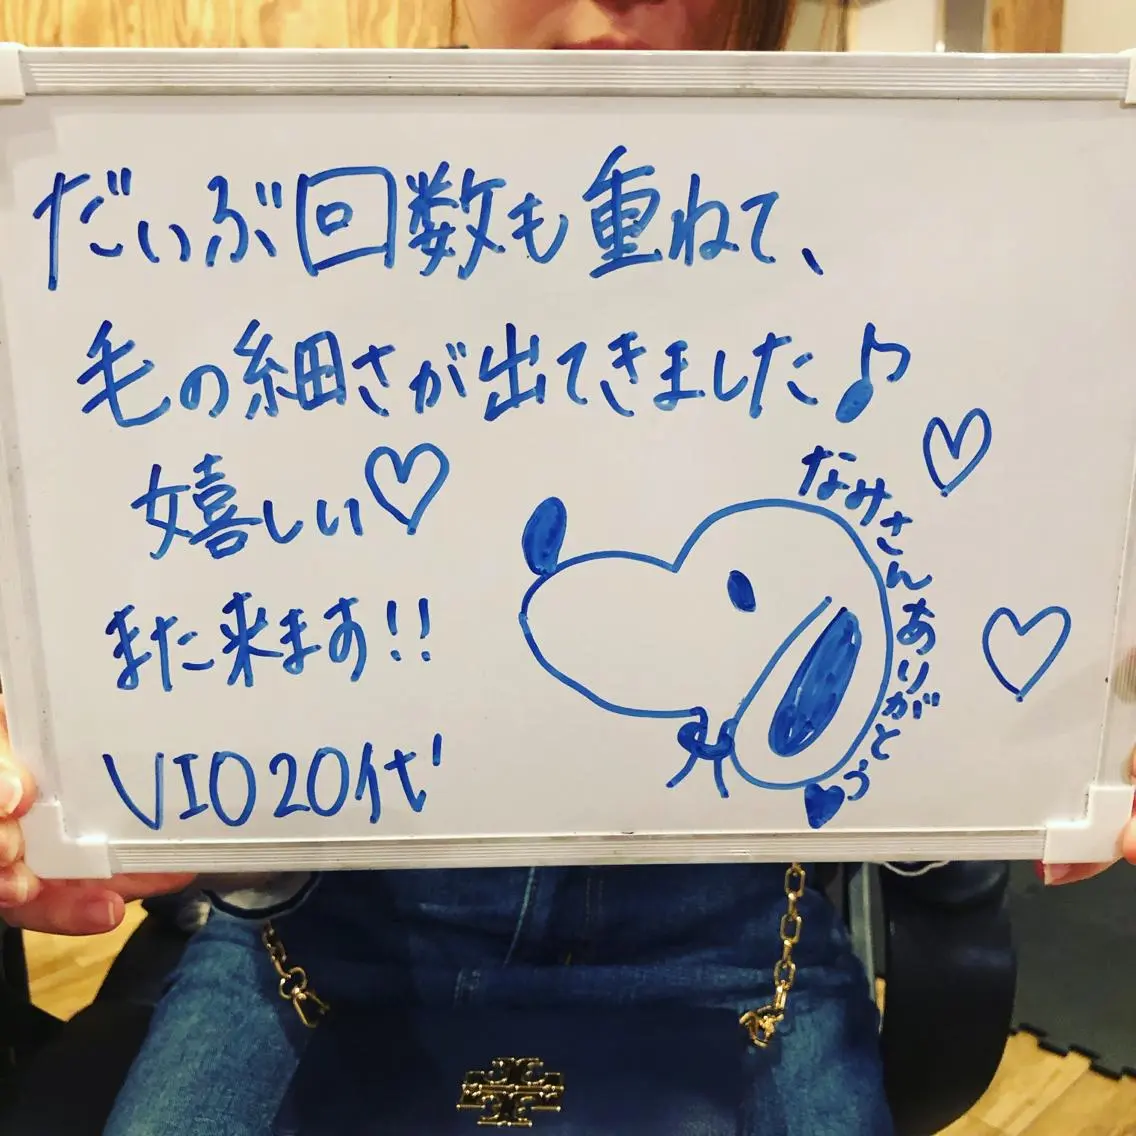 だいぶ回数も重ねて、
毛の細さが出てきました♪
嬉しい♡
また来ます!!
VIO 20代
なみさんありがとう